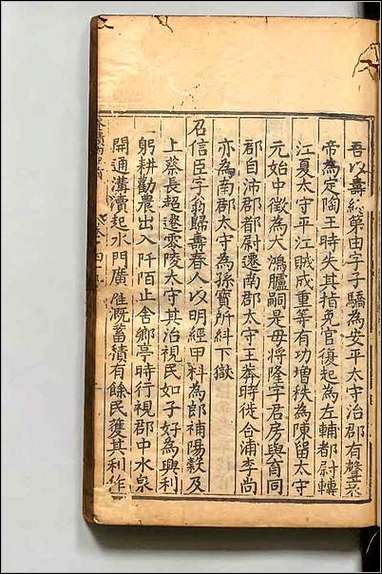 吾以壽終第由字子驕為安平太守治郡有聲哀
帝為定陶王時失其指免官復起為左輔都尉轉
江夏太守平江賊成重等有功增秩為陳留太守
元始中徵為大鴻臚嗣是毋將隆字君房與育同
郡自沛郡都尉遷南郡太守王莽時徙合浦李尚
亦為南郡太守為孫寶所糾下獄
召信臣字翁歸壽春人以明經甲科為郎補陽穀及
上蔡長超遷零陵太守其治視民如子好為興利
躬耕勸農出入阡陌止舍鄉亭時行視郡中水泉
開通溝瀆起水門廣溉蓄積有餘民獲其利作